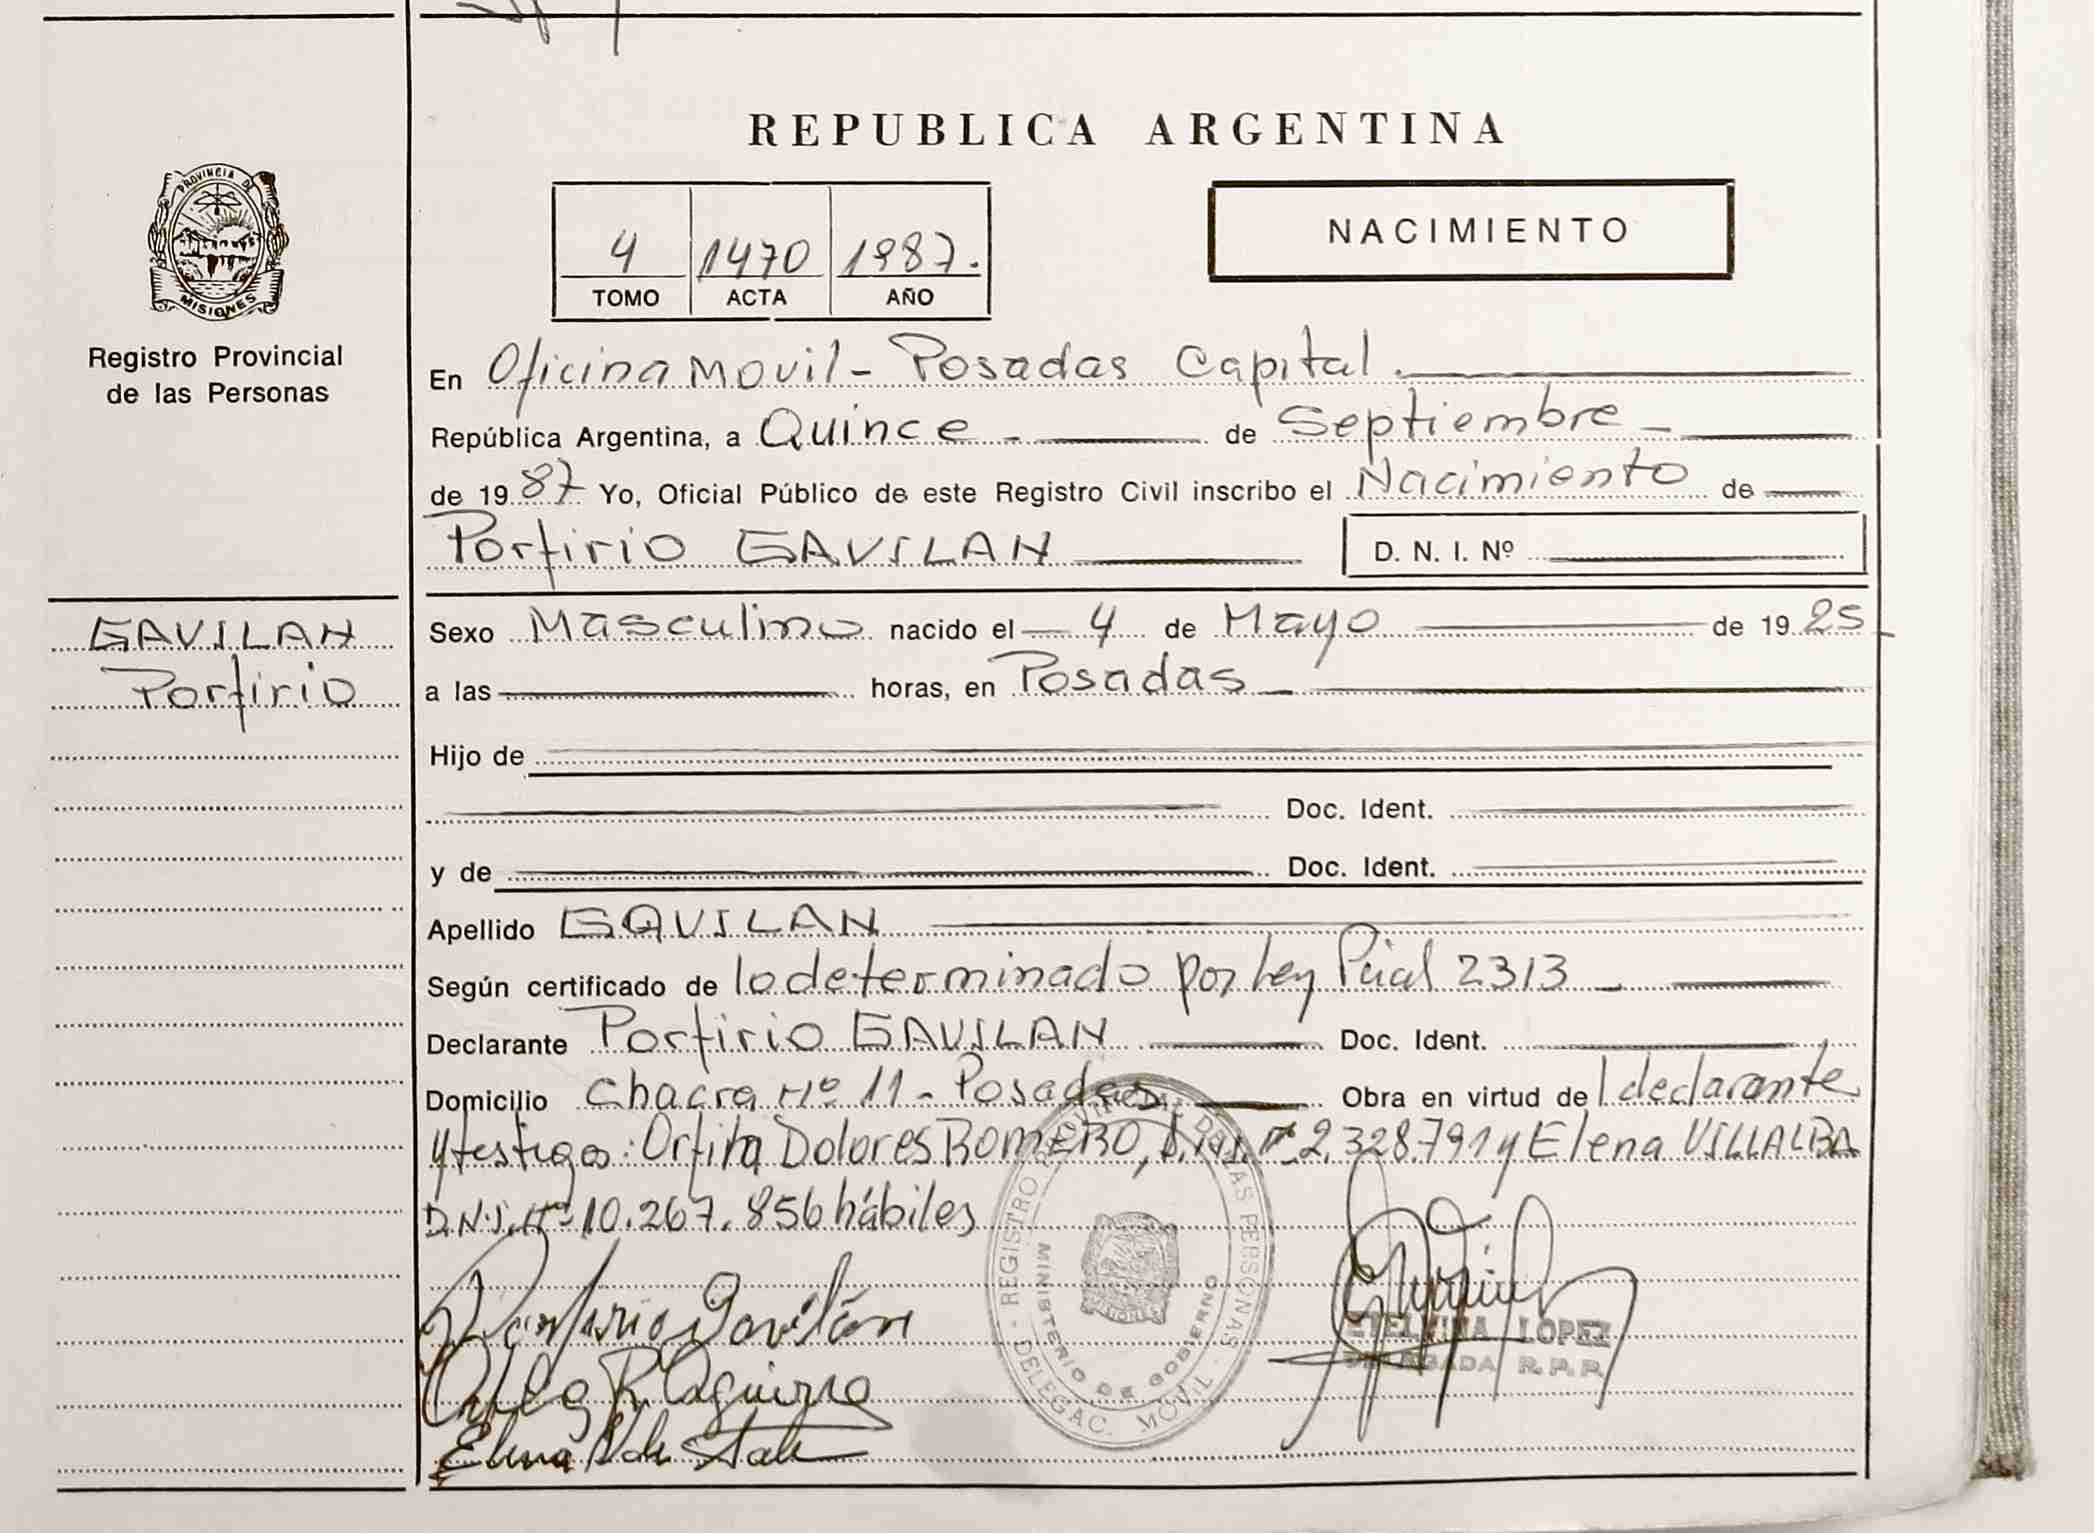 REPUBLICA ARGENTINA
PROVINCIA DE
MISIONES
Registro Provincial
de las Personas
4 1470 1987.
TOMO ACTA AÑO
NACIMIENTO
En Oficina Movil - Posadas Capital
República Argentina, a Quince - de Septiembre -
de 1987 Yo, Oficial Público de este Registro Civil inscribo el Nacimiento de
Porfirio GAVILAN D. N. I. Nº
GAVILAN
Porfirio
Sexo Masculino nacido el 4 de Mayo de 1925
a las horas, en Posadas
Hijo de
Doc. Ident.
y de Doc. Ident.
Apellido GAVILAN
Según certificado de lo determinado por Ley Pcial 2313
Declarante Porfirio GAVILAN Doc. Ident.
Domicilio Chacra Nº 11 - Posadas, Obra en virtud de l declarante
y testigos: Orfina Dolores ROMERO, D.N.I. Nº 2.328.791 y Elena VILLALBA
D.N.I. Nº 10.267.856 hábiles
Porfirio Gavilán
Elena
REGISTRO PROVINCIAL DE LAS PERSONAS
MINISTERIO DE GOBIERNO
DELEGAC. MOVIL
ETELVINA LOPEZ
DELEGADA R.P.P.